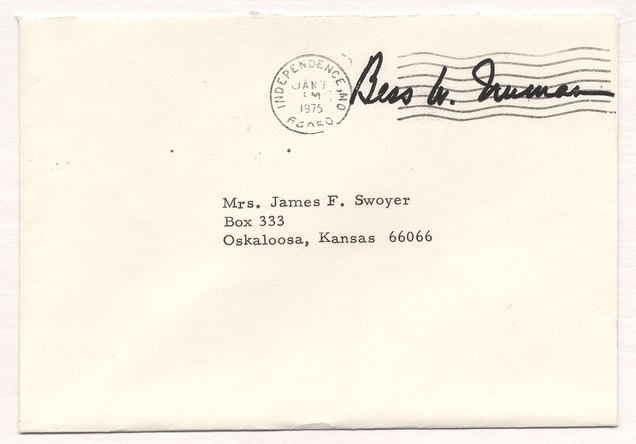 INDEPENDENCE, MO
JAN
PM
1975
Bess W. Truman
Mrs. James F. Swoyer
Box 333
Oskaloosa, Kansas 66066